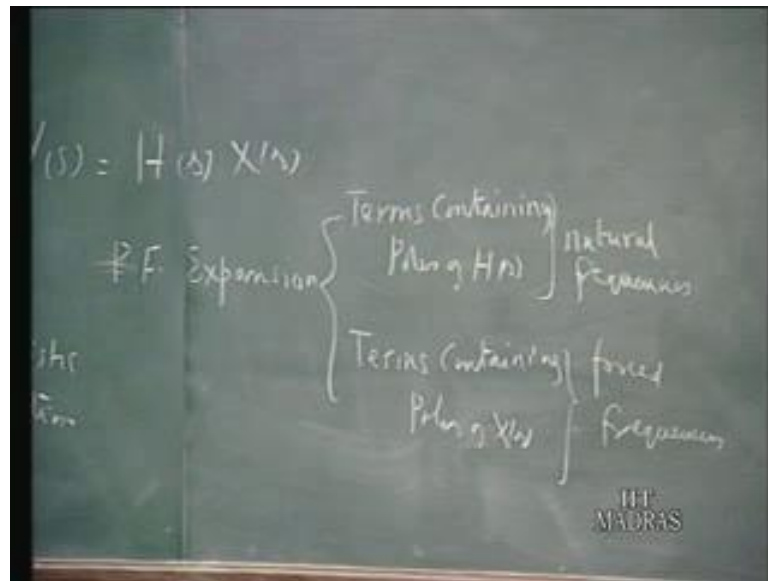 Y(s) = H(s) X(s)
P.F. Expansion
Terms Containing
Poles of H(s)
natural
frequencies
Terms Containing
Poles of X(s)
forced
frequencies
IIT
MADRAS